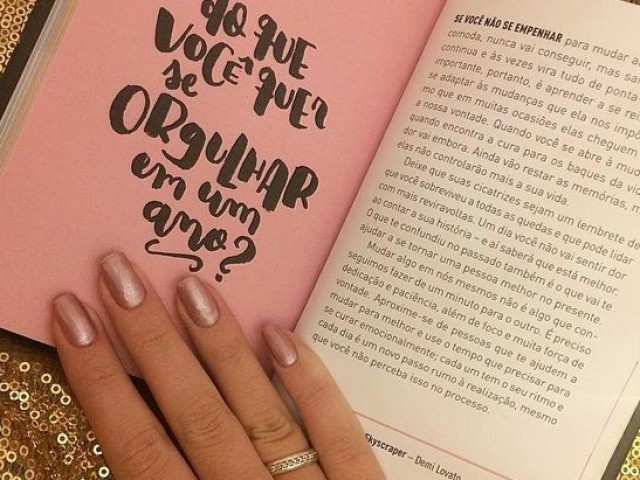 do que
você quer
se
ORGULHAR
em um
ano?
SE VOCÊ NÃO SE EMPENHAR para mudar a
comoda, nunca vai conseguir, mas sa
continua e às vezes vira tudo de ponta
importante, portanto, é aprender a se re
se adaptar às mudanças que ela nos imp
mo que em muitas ocasiões elas cheguem
a nossa vontade. Quando você se abre à mud
quando encontra a cura para os baques da vi
dor vai embora. Ainda vão restar as memórias, m
elas não controlarão mais a sua vida.
Deixe que suas cicatrizes sejam um lembrete d
que você sobreviveu a todas as quedas e que pode lidar
com mais reviravoltas. Um dia você não vai sentir dor
ao contar a sua história – e aí saberá que está melhor.
O que te confundiu no passado também é o que vai te
ajudar a se tornar uma pessoa melhor no presente.
Mudar algo em nós mesmos não é algo que con-
seguimos fazer de um minuto para o outro. É preciso
dedicação e paciência, além de foco e muita força de
vontade. Aproxime-se de pessoas que te ajudem a
mudar para melhor e use o tempo que precisar para
se curar emocionalmente; cada um tem o seu ritmo e
cada dia é um novo passo rumo à realização, mesmo
que você não perceba isso no processo.
Skyscraper — Demi Lovato